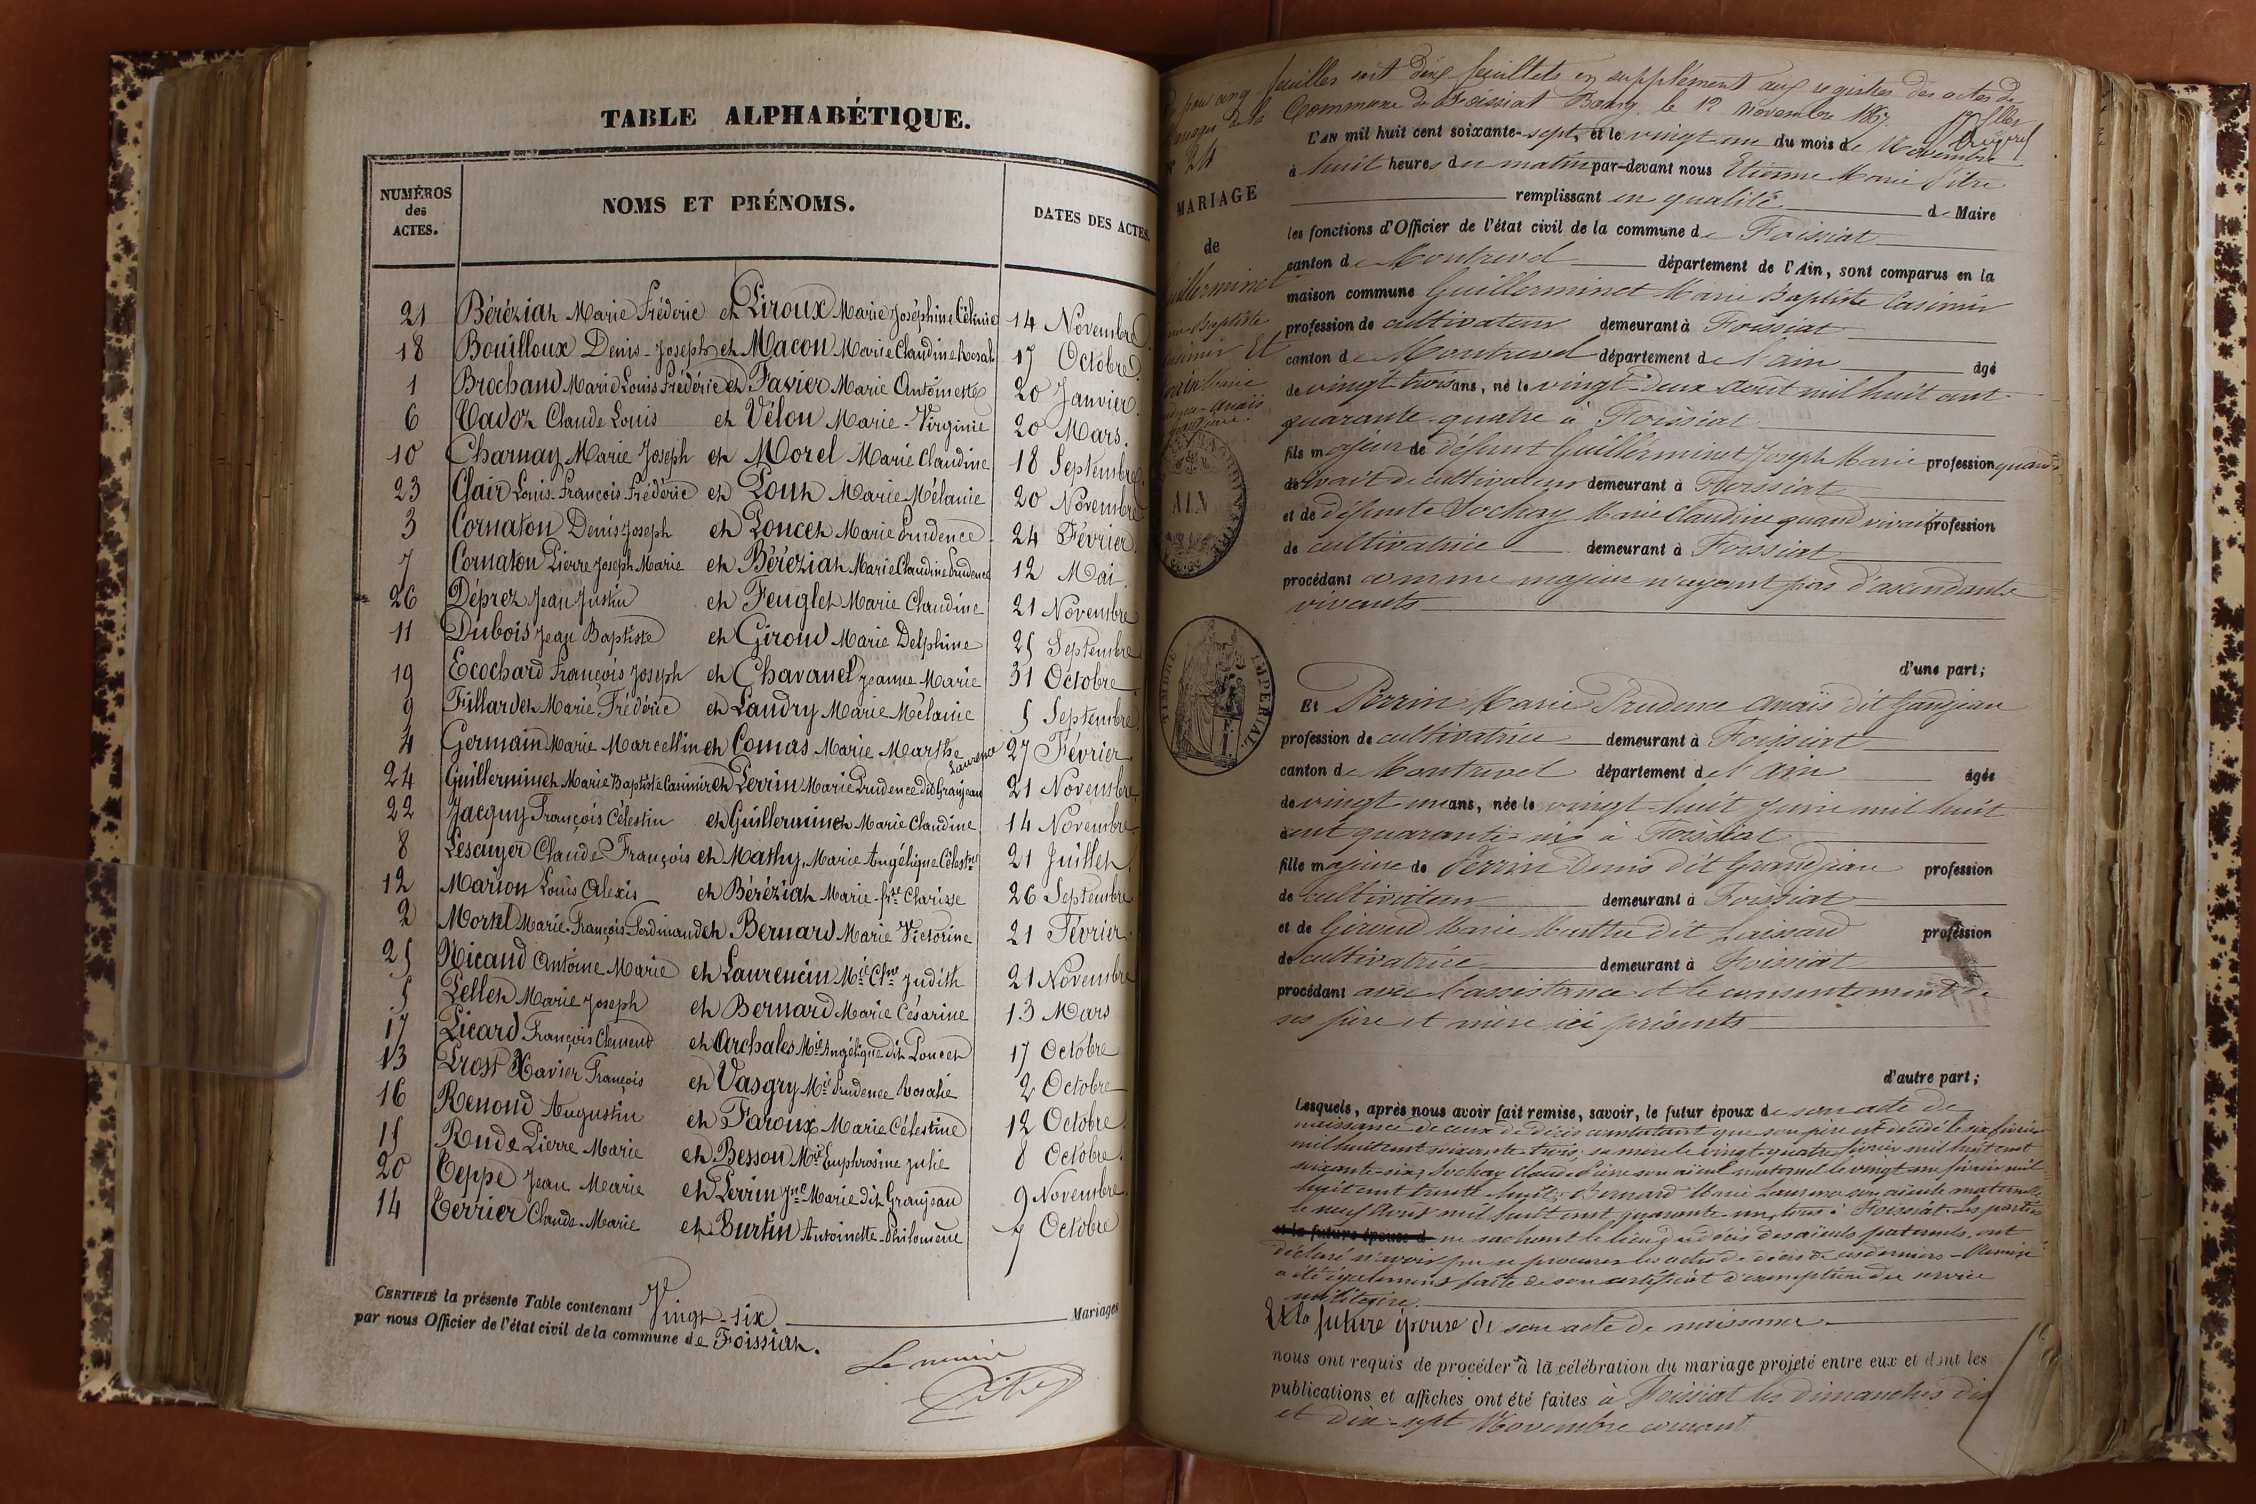 TABLE ALPHABÉTIQUE.
NUMÉROS des ACTES.
NOMS ET PRÉNOMS.
DATES DES ACTES.
21 Béréziat Marie Fréderic et Piroux Marie Joséphine Célinie 14 Novembre.
18 Bouilloux Denis-Joseph et Macon Marie Claudine Rosal. 17 Octobre.
1 Brochand Marie Louis Frédéric et Favier Marie Antoinette 20 Janvier.
6 Cadoz Claude Louis et Vélon Marie-Virginie 20 Mars.
10 Charnay Marie Joseph et Morel Marie Claudine 18 Septembre.
23 Clair Louis-François Frédéric et Pont Marie Mélanie 20 Novembre
3 Cornaton Denis Joseph et Poncet Marie Prudence 24 Février.
7 Cornaton Pierre Joseph Marie et Béréziat Marie Claudine Prudence 12 Mai.
26 Déprez Jean Justin et Feuglet Marie Claudine 21 Novembre
11 Dubois Jean Baptiste et Giroud Marie Delphine 25 Septembre
19 Ecochard François Joseph et Chavanel Jeanne Marie 31 Octobre
9 Fillardet Marie Frédéric et Landry Marie Mélanie 5 Septembre
4 Germain Marie Marcellin et Comas Marie Marthe Laurence 27 Février
24 Guillerminet Marie Baptiste Casimir et Perrin Marie Prudence dit Granjean 21 Novembre
22 Jacquy François Célestin et Guillerminet Marie Claudine 14 Novembre
8 Lescuyer Claude François et Mathy Marie Angélique Célestne 21 Juillet.
12 Marion Louis Alexis et Béréziat Marie-frse Clarisse 26 Septembre
2 Morel Marie-François-Ferdinand et Bernard Marie Victorine 21 Février
25 Nicand Antoine Marie et Laurencin Mie Clne Judith 21 Novembre
5 Pellet Marie Joseph et Bernard Marie Césarine 13 Mars
17 Picard François Clément et Archales Mie Angélique dit Poncet 17 Octobre
13 Prost Xavier François et Vasgry Mie Prudence Rosalie 2 Octobre
16 Renoud Augustin et Faroux Marie Célestine 12 Octobre.
15 Rude Pierre Marie et Besson Mie Euphrosine Julie 8 Octobre.
20 Teppe Jean Marie et Perrin Jne Marie dit Granjean 9 Novembre.
14 Terrier Claude-Marie et Burtin Antoinette-Philomène 7 Octobre
CERTIFIÉ la présente Table contenant Vingt-six Mariages
par nous Officier de l'état civil de la commune de Foissiat.
Le maire
Pitre
pour cinq feuilles soit dix feuillets en supplément aux registres des actes de
mariages de la Commune de Foissiat Bourg, le 12 Novembre 1867.
N° 24
MARIAGE
de
Guillerminet
Marie Baptiste
Casimir Et
Perrin Marie
Prudence-Anaïs
AIN
TIMBRE IMPERIAL.
L'AN mil huit cent soixante-sept, et le vingt un du mois de Novembre
à huit heures du matin par-devant nous Etienne Marie Pitre
remplissant en qualité de Maire
les fonctions d'Officier de l'état civil de la commune de Foissiat
canton de Montrevel département de l'Ain, sont comparus en la
maison commune Guillerminet Marie Baptiste Casimir
profession de cultivateur demeurant à Foissiat
canton de Montrevel département de l'ain âgé
de vingt trois ans, né le vingt-deux Aout mil huit cent
quarante quatre à Foissiat
fils majeur de défunt Guillerminet Joseph Marie profession quand
vivait de cultivateur demeurant à Foissiat
et de défunte Sochay Marie Claudine quand vivait profession
de cultivatrice demeurant à Foissiat
procédant comme majeur n'ayant pas d'ascendants
vivants
d'une part;
Et Perrin Marie Prudence Anaïs dit Ganjean
profession de cultivatrice demeurant à Foissiat
canton de Montrevel département de l'Ain âgée
de vingt-un ans, née le vingt-huit Juin mil huit
cent quarante-six à Foissiat
fille majeure de Perrin Denis dit Grandjean profession
de cultivateur demeurant à Foissiat
et de Giroud Marie Marthe dit Laissard profession
de cultivatrice demeurant à Foissiat
procédant avec l'assistance et le consentement de
ses père et mère ici présents
d'autre part;
Lesquels, après nous avoir fait remise, savoir, le futur époux de son acte de
naissance de ceux de décès constatant que son père est décédé le six février
mil huit cent soixante-trois, sa mère le vingt-quatre février mil huit cent
soixante-six, Sochay Claude Pierre son aïeul maternel le vingt-un février mil
huit cent trente-huit, Bernard Marie Laurence son aïeule maternelle
le neuf Aout mil huit cent quarante-un, tous à Foissiat. Les parties
et la future épouse d ne sachant le lieu du décès des aïeuls paternels, ont
déclaré n'avoir pu se procurer les actes de décès de ces derniers - Remise
a été également faite de son certificat d'exemption du service
militaire.
Et la future épouse de son acte de naissance
nous ont requis de procéder à la célébration du mariage projeté entre eux et dont les
publications et affiches ont été faites à Foissiat les dimanches dix
et dix-sept Novembre courant